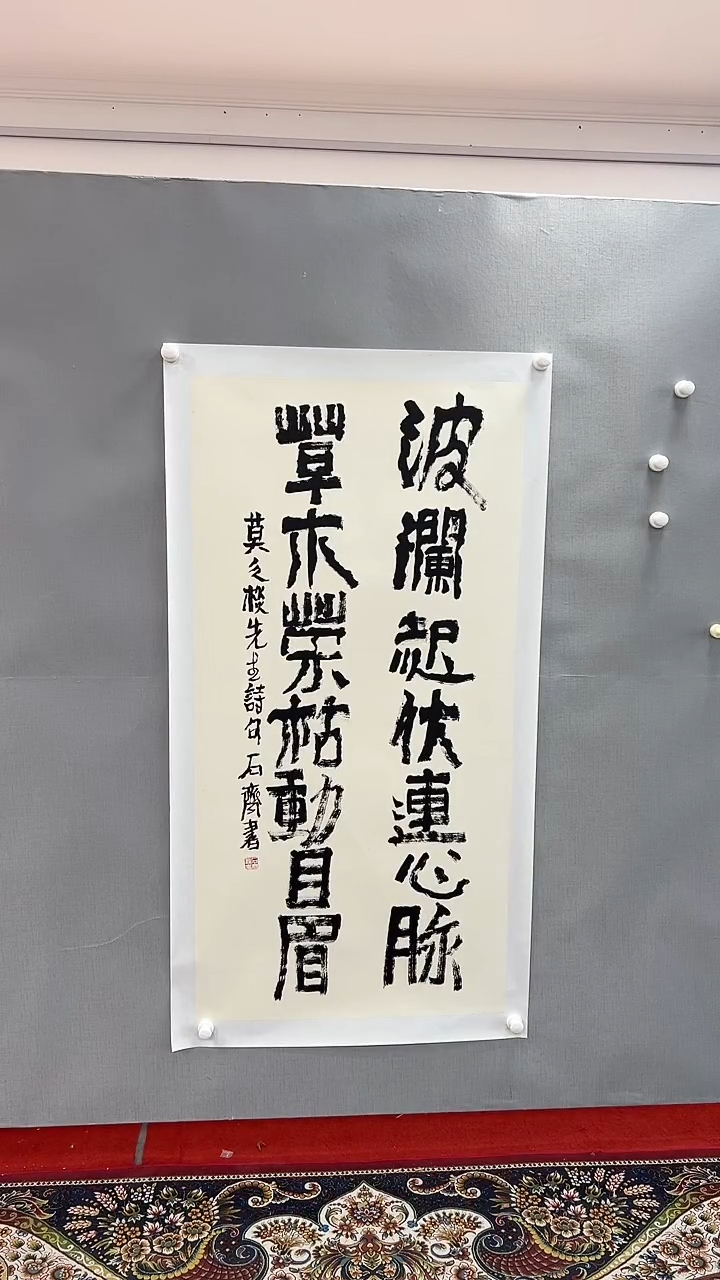 波瀾起伏連心脉
草木榮枯動目眉
莫之棪先生詩句石齊書